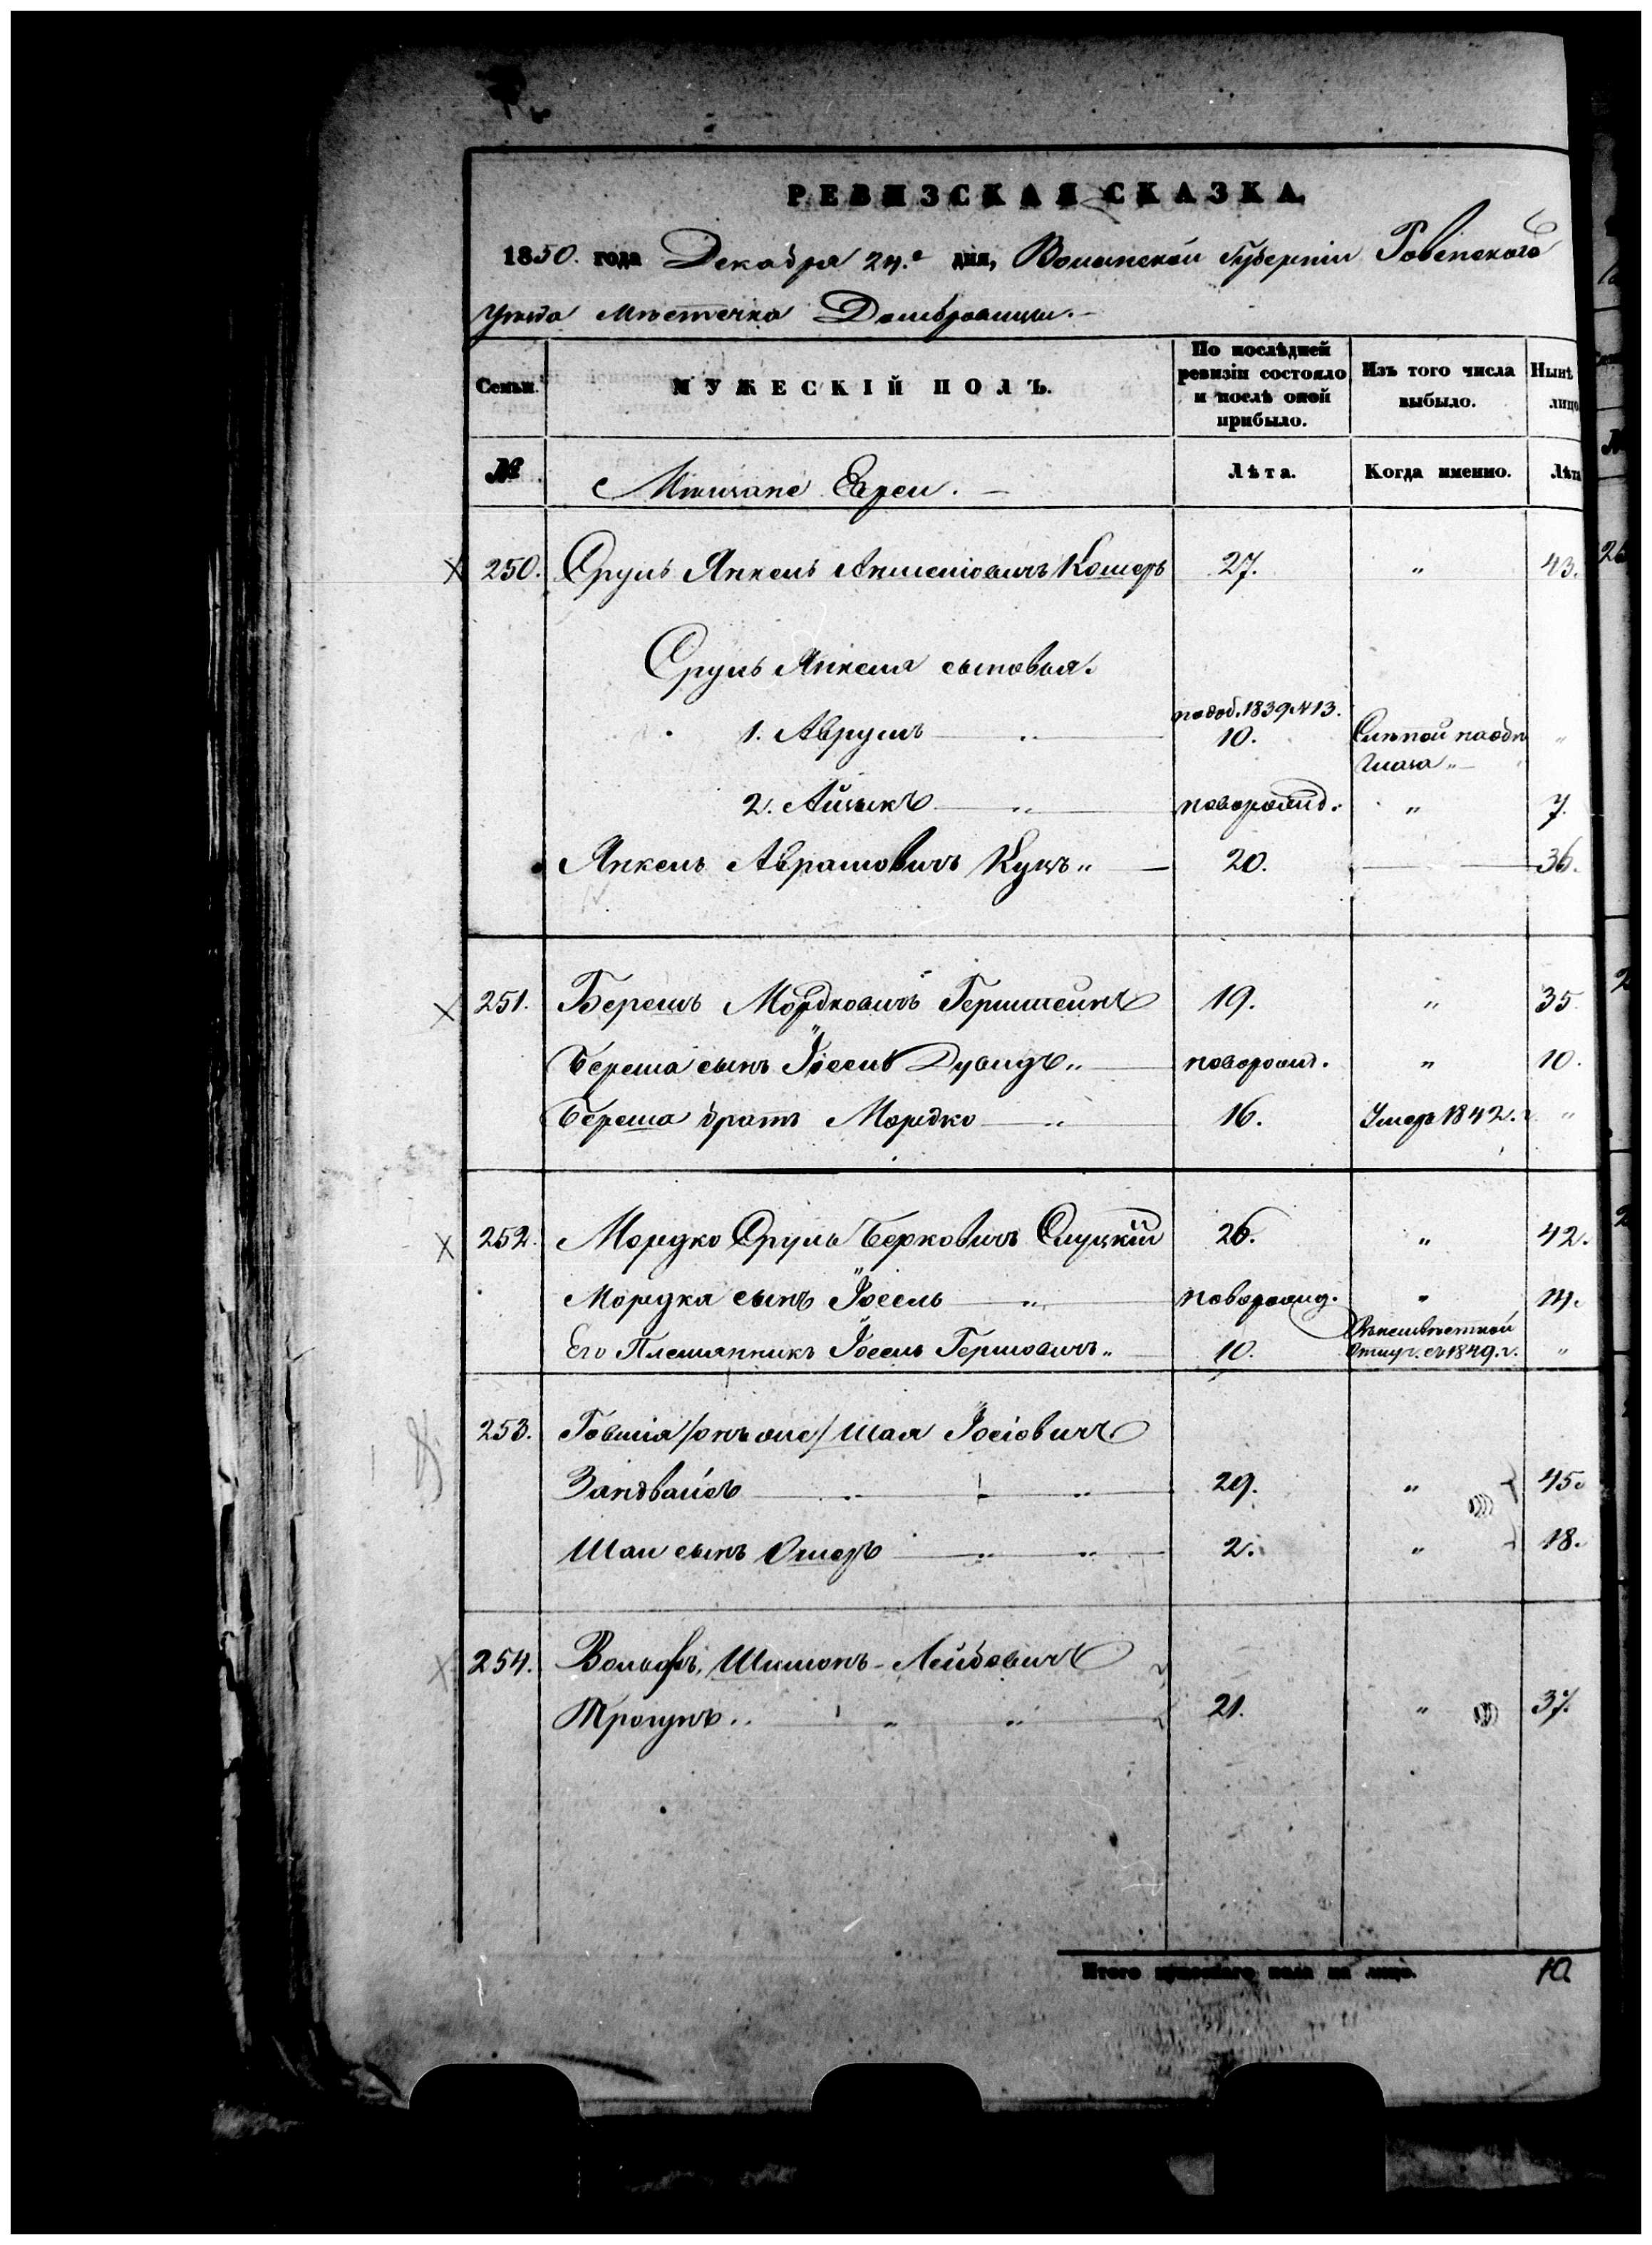 РЕВИЗСКАЯ СКАЗКА.
1850. года Декабря 24.го дня, Волынской Губерніи Ровенского
уѣзда мѣстечка Домбровицы.
Семьи. МУЖЕСКІЙ ПОЛЪ. По послѣдней ревизіи состояло и послѣ оной прибыло. Изъ того числа выбыло. Нынѣ лицо
№ Мѣщане Евреи. Лѣта. Когда именно. Лѣта
250. Сруль Янкель Аншелiовичъ Кошеръ 27. " 43.
Сруль Янкеля сыновья.
1. Аврумъ " 10. Слѣпой
глаза "
2. Айзыкъ " новорожд. " 7.
Янкель Абрамовичъ Куцъ " 20. 36.
251. Берешъ Мордковичъ Герштейнъ 19. " 35.
Береша сынъ Іосель Дувидъ " новорожд. " 10.
Береша братъ Мордко " 16. Умеръ 1842. г "
252. Мордко Сруль Берковичъ Слуцкій 26. " 42.
Мордка сынъ Іосель " новорожд. " 14.
Его Племянникъ Іосель Гершовичъ " 10. Въ неизвѣстной отлуч. съ 1849. г. "
253. Говшія /онъ же/ Шая Іосіовичъ
Зандвайсъ " " 29. " 45.
Шаи сынъ Ошеръ " " 2. " 18.
254. Вольфъ, Шимонъ-Лейбовичъ
Трогунъ " " 21. " 37.
Итого мужескаго пола на лицо. 10.